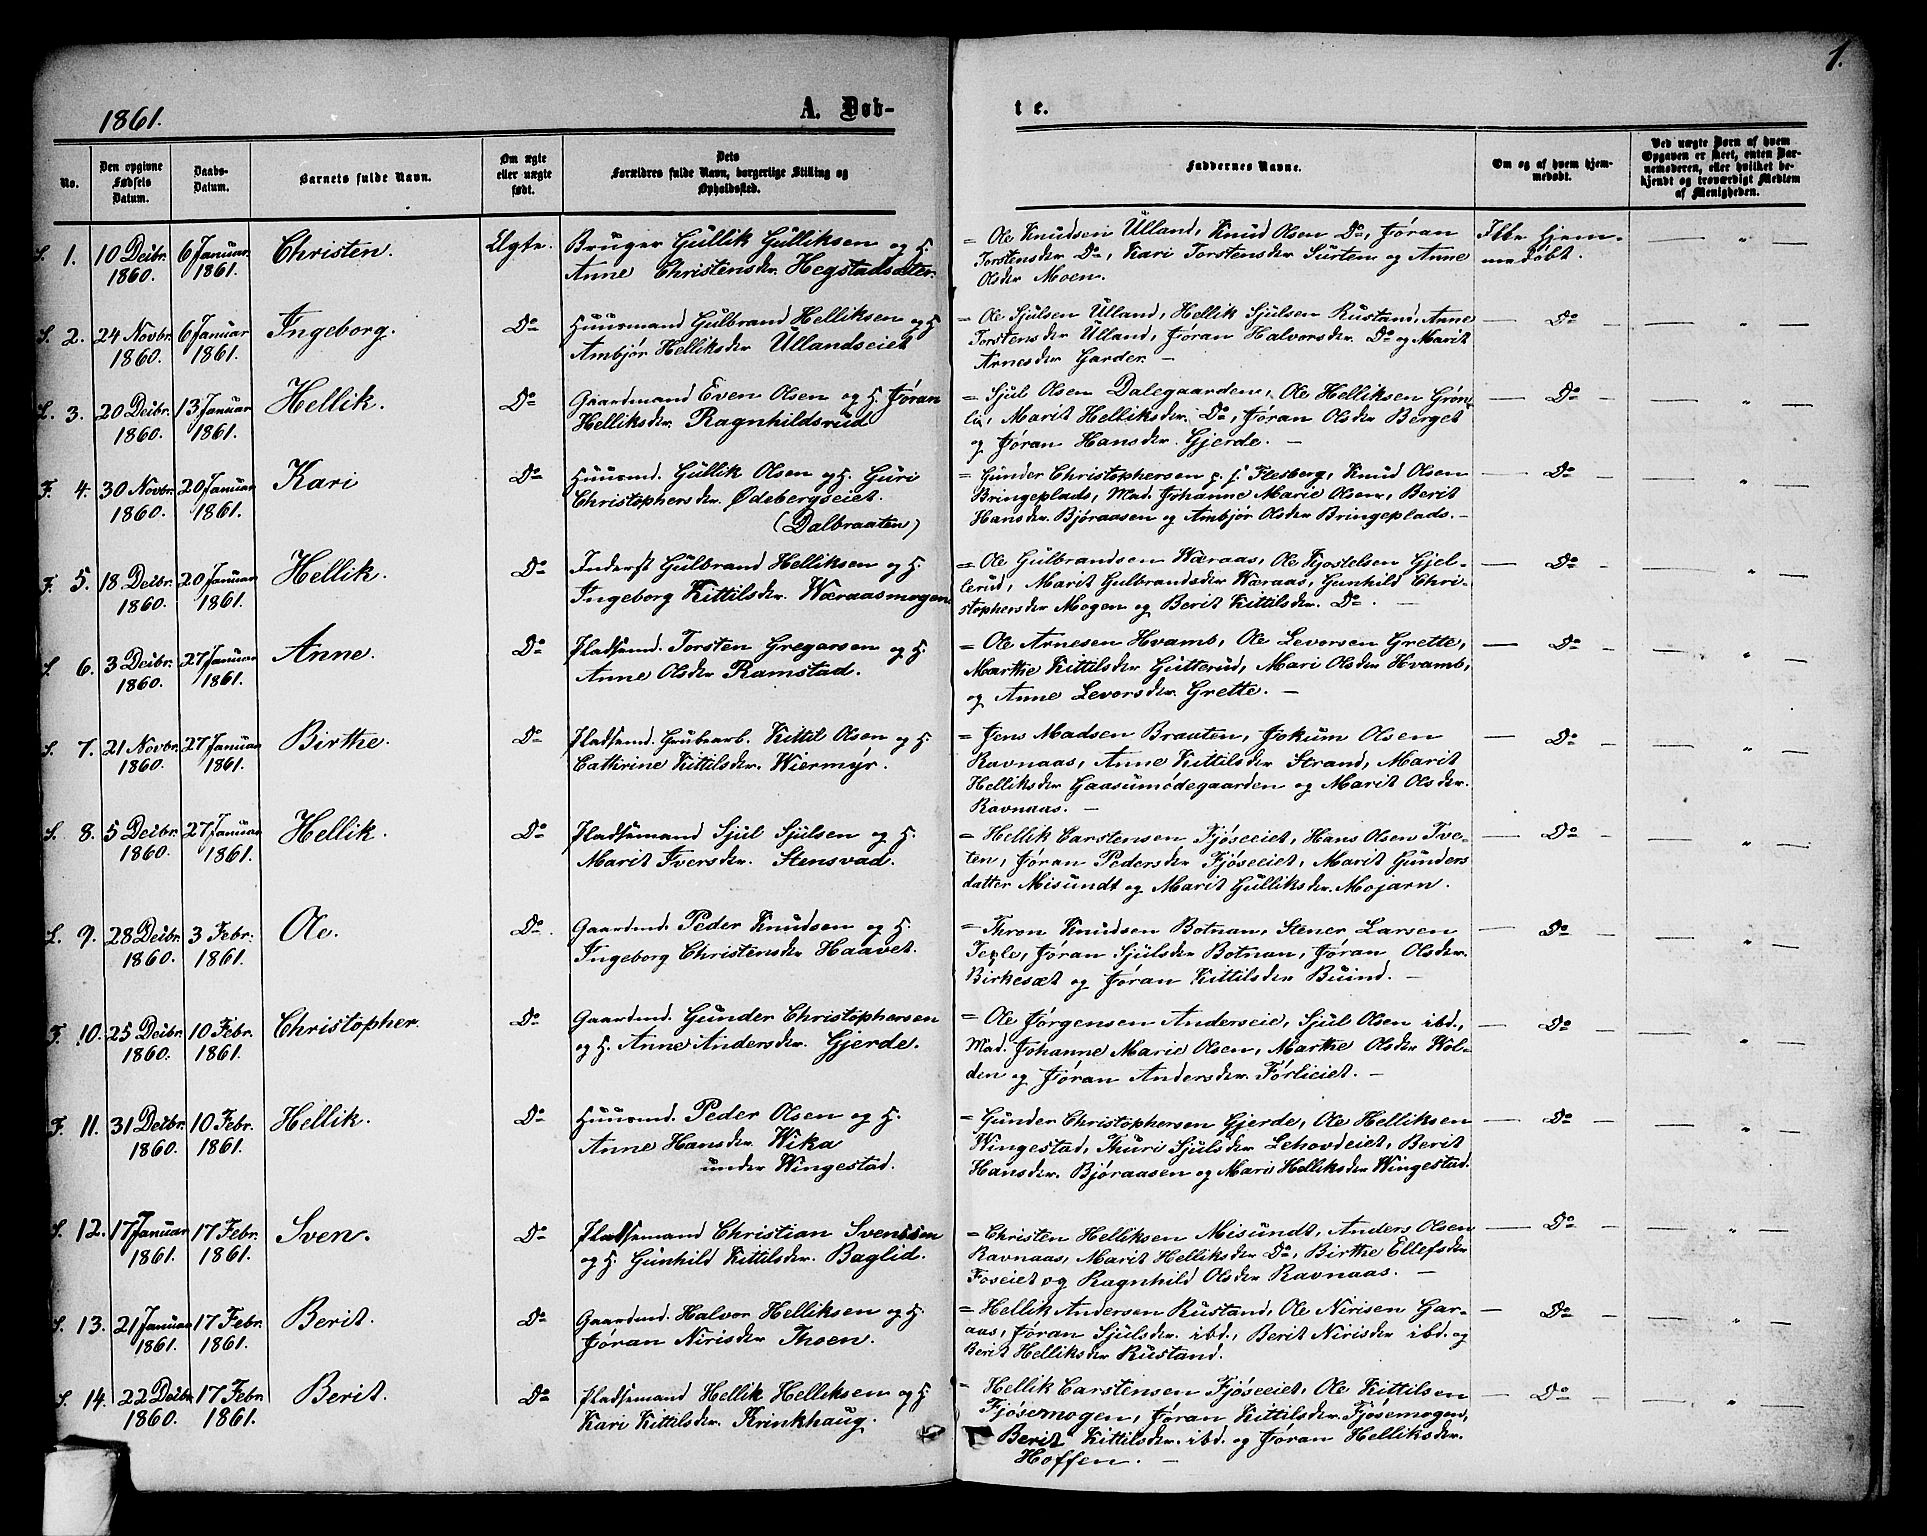 1.
1861. A. Døb- t e.
No.
Den opgivne Fødsels Datum.
Daabs-Datum.
Barnets fulde Navn.
Om ægte eller uægte født.
Dets Forældres fulde Navn, borgerlige Stilling og Opholdssted.
Faddernes Navne.
Om og af hvem hjemmedøbt.
Ved uægte Børn af hvem Opgaven er skeet, enten Barnemoderen, eller hvilket bekjendt og troværdigt Medlem af Menigheden.
S. 1. 10 Deibr. 6 Januar Christen. Ægte. Brüger Güllik Gülliksen og H. = Ole Knudsen Ülland, Knud Olsen Do, Jøran Ikke hjem-
1860. 1861. Anne Christensdr. Hegstadsæter. Torstensdr Do, Kari Torstensdr Sürten og Anne medøbt.
Olsdr Moen.
S. 2. 24 Novbr. 6 Januar Ingeborg. Do Hüüsmand Gülbrand Helliksen og H = Ole Sjülsen Ülland, Hellik Sjülsen Rüstand, Anne — Do —
1860. 1861. Ambjør Helliksdr Üllandseiet Torstensdr Ülland, Jøran Halvorsdr. Do og Marit
Arnesdr Garder. —
L. 3. 20 Deibr. 13 Januar Hellik. Do Gaardmand Even Olsen og H Jøran = Sjul Olsen Dalegaarden, Ole Helliksen Grøn- — Do —
1860. 1861. Helliksdr. Ragnhildsrüd. li, Marit Helliksdr. Do, Jøran Olsdr Berget
og Jøran Hansdr. Gjerde. —
F. 4. 30 Novbr. 20 Januar Kari Do Hüüsmd. Güllik Olsen og H. Güri = Günder Christophersen p. t. Flesberg, Knud Olsen — Do —
1860. 1861. Christophersdr. Ødebergseiet. Bringeplads, Mad. Johanne Marie Olsen, Berit
(Dalbraaten) Hansdr. Bjøraasen og Ambjør Olsdr Bringeplads. —
F. 5. 18 Deibr. 20 Januar Hellik. Do Inderst Gülbrand Helliksen og H. = Ole Gülbrandsen Wæraas, Ole Kjostelsen Gjel- — Do —
1860. 1861. Ingeborg Kittilsdr. Wæraasmogen. lerüd, Marit Gulbrandsdr Wæraas, Gunhild Chri-
stophersdr Mogen og Berit Kittilsdr. Do. —
S. 6. 3 Deibr. 27 Januar Anne. Do Pladsemd. Torsten Gregarsen og H. = Ole Arnesen Hvamb, Ole Levorsen Grette, — Do —
1860. 1861. Anne Olsdr Ramstad. Marthe Kittilsdr Gütterüd, Mari Olsdr Hvamb,
og Anne Levorsdr. Grette. —
S. 7. 21 Novbr. 27 Januar Birthe. Do Pladsemd. Grübearb. Kittil Olsen og H. = Jens Madsen Braaten, Jokum Olsen — Do —
1860. 1861. Cathrine Kittilsdr. Wiermyr. Ravnaas, Anne Kittilsdr Strand, Marit
Helliksdr Gaasumødegaarden og Marit Olsdr.
Ravnaas. —
S. 8. 5 Deibr. 27 Januar Hellik. Do Pladsemand Sjül Sjülsen og H. = Hellik Carstensen Fjøseeiet, Hans Olsen Tve- — Do —
1860. 1861. Marit Iversdr. Stensvad. ten, Jøran Pedersdr Fjøseeiet, Marit Günders
datter Misündt og Marit Gülliksdr. Mojarn.
L. 9. 28 Deibr. 3 Febr. Ole. Do Gaardmd. Peder Knüdsen og H. = Thron Knüdsen Botnan, Stener Larsen — Do —
1860. 1861. Ingeborg Christensdr Haavet. Teple, Jøran Sjülsdr Botnan, Jøran Olsdr.
Birkesæt og Jøran Kittilsdr Büind. —
F. 10. 25 Deibr. 10 Febr. Christopher. Do Gaardmd. Günder Christophersen = Ole Jørgensen Anderseie, Sjül Olsen ibd., — Do —
1860. 1861. og H. Anne Andersdr. Gjerde. Mad. Johanne Marie Olsen, Marthe Olsdr Hol-
den og Jøran Andersdr. Førlieiet. —
F. 11. 31 Deibr. 10 Febr. Hellik. Do Hüüsmd. Peder Olsen og H. = Günder Christophersen Gjerde, Ole Helliksen — Do —
1860. 1861. Anne Hansdr Wika Wingestad, Thüri Sjülsdr Lehovdeiet, Berit
under Wingestad. Hansdr. Bjøraasen og Mari Helliksdr Wingestad.
S. 12. 17 Januar 17 Febr. Sven. Do Pladsemand Christian Svendsen = Christen Helliksen Misündt, Anders Olsen — Do —
1861. 1861. og H. Günhild Kittilsdr. Baglid. Ravnaas, Marit Helliksdr Do, Birthe Ellefsdr
Foseiet og Ragnhild Olsdr Ravnaas. —
S. 13. 21 Januar 17 Febr. Berit. Do Gaardmd. Halvor Helliksen og H. = Hellik Andersen Rüstand, Ole Nirisen Gar- — Do —
1861. 1861. Jøran Nirisdr Thoen. aas, Jøran Sjülsdr. ibd., Berit Nirisdr ibd. og
Berit Helliksdr Rüstand.
S. 14. 22 Deibr. 17 Febr. Berit. Do Pladsemand Hellik Helliksen og H. = Hellik Carstensen Fjøseeiet, Ole Kittilsen — Do —
1860. 1861. Kari Kittilsdr. Krinkhaug. Fjøsemogen, Jøran Kittilsdr. Fjøsemogen,
Berit Kittilsdr. ibd. og Jøran Helliksdr.
Hoffen. —